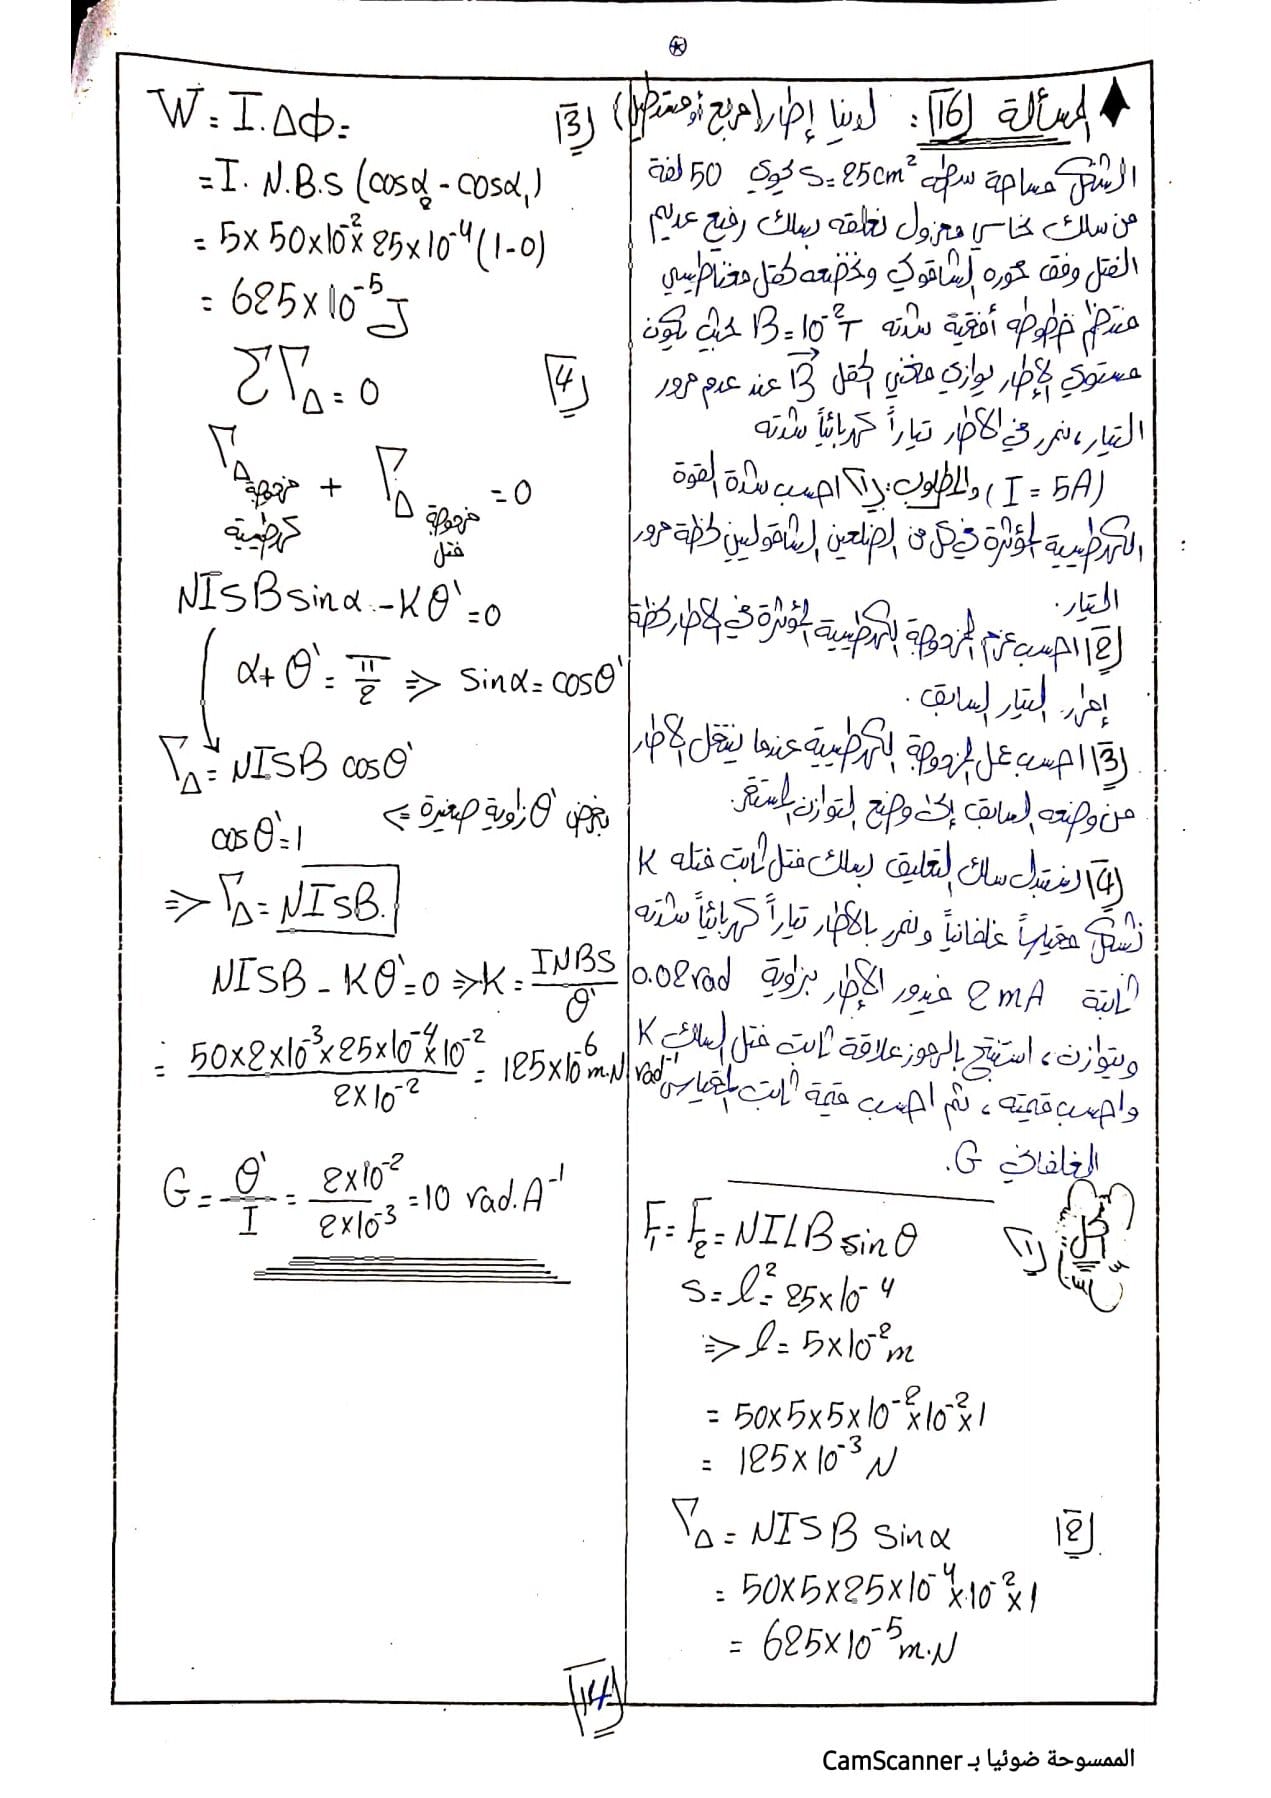 المسألة (16): لدينا إطار (مربع أو مستطيل)
الشكل مساحة سطحه S = 25cm² يحوي 50 لفة
من سلك نحاسي معزول نعلقه بسلك رفيع عديم
الفتل وفق محوره الشاقولي ونخضعه لحقل مغناطيسي
منتظم خطوطه أفقية شدته B = 10⁻²T حيث يكون
مستوي الإطار يوازي منحني الحقل B⃗ عند عدم مرور
التيار، نمرر في الإطار تياراً كهربائياً شدته
(I = 5A) والمطلوب: 1) احسب شدة القوة
الكهرطيسية المؤثرة في كل من الضلعين الشاقوليين لحظة مرور
التيار.
2) احسب عزم المزدوجة الكهرطيسية المؤثرة في الإطار لحظة
إمرار التيار السابق.
3) احسب عمل المزدوجة الكهرطيسية عندما ينتقل الإطار
من وضعه السابق إلى وضع التوازن المستقر.
4) نستبدل سلك التعليق بسلك فتل ثابت فتله K
نشكل مقياساً غلفانياً ونمرر بالإطار تياراً كهربائياً شدته
ثابتة 2 mA فيدور الإطار بزاوية 0.02 rad
ويتوازن، استنتج بالرموز علاقة ثابت فتل السلك K
واحسب قيمته، ثم احسب قيمة ثابت المقياس
الغلفاني G.
الحل:
1) F₁ = F₂ = NILB sinθ
S = l² = 25×10⁻⁴
⇒ l = 5×10⁻² m
= 50×5×5×10⁻²×10⁻²×1
= 125×10⁻³ N
2) Γ_Δ = NISB sinα
= 50×5×25×10⁻⁴×10⁻²×1
= 625×10⁻⁵ m.N
3) W = I.ΔΦ =
= I.N.B.S (cosα₂ - cosα₁)
= 5×50×10⁻²×25×10⁻⁴ (1-0)
= 625×10⁻⁵ J
4) ΣΓ_Δ = 0
Γ_Δ مزدوجة كهرطيسية + Γ_Δ مزدوجة فتل = 0
NISB sinα - Kθ' = 0
α + θ' = π/2 ⇒ sinα = cosθ'
Γ_Δ = NISB cosθ'
بفرض θ' زاوية صغيرة ⇐
cosθ' = 1
⇒ Γ_Δ = NISB.
NISB - Kθ' = 0 ⇒ K = INBS/θ'
= 50×2×10⁻³×25×10⁻⁴×10⁻² / 2×10⁻² = 125×10⁻⁶ m.N rad⁻¹
G = θ'/I = 2×10⁻² / 2×10⁻³ = 10 rad.A⁻¹
14
الممسوحة ضوئيا بـ CamScanner